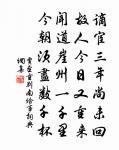 謫宦三年尚未回
故人今日又重來
聞道崖州一千里
今朝須盡數千杯
賈至重別南給事詞典
網集